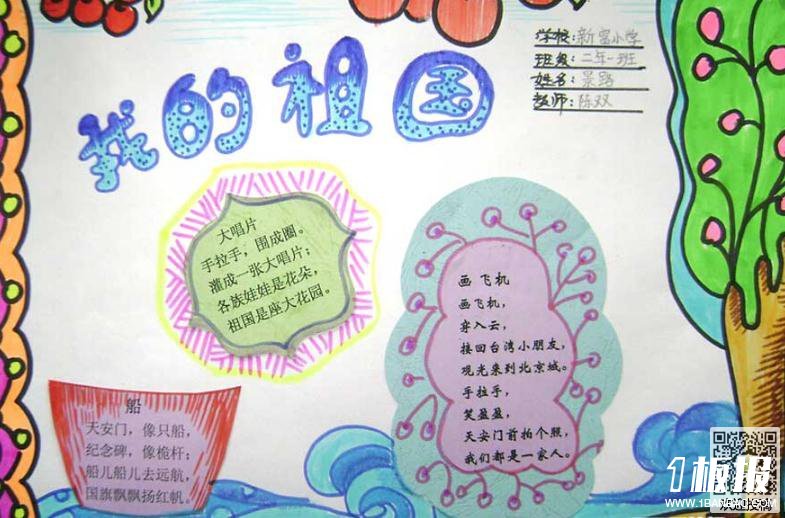 我的祖国
学校:新富小学
班级:二年一班
姓名:景路
教师:陈双
大唱片
手拉手，围成圈。
灌成一张大唱片；
各族娃娃是花朵，
祖国是座大花园。
画飞机
画飞机，
穿入云，
接回台湾小朋友，
观光来到北京城。
手拉手，
笑盈盈，
天安门前拍个照，
我们都是一家人。
船
天安门，像只船，
纪念碑，像桅杆；
船儿船儿去远航，
国旗飘飘扬红帆。
1板报
WWW.1BANBAO.COM
欢迎投稿